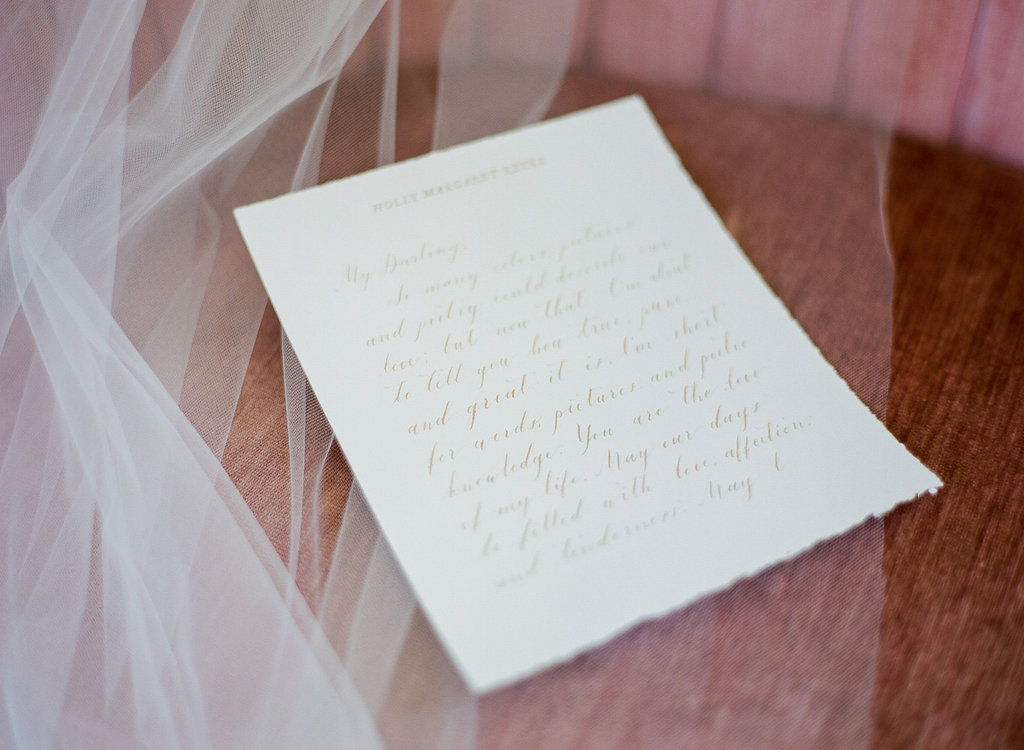 HOLLY MARGARET REYES
My Darling,
So many colors, pictures
and poetry could describe our
love; but now that I'm about
to tell you how true, pure
and great it is, I'm short
for words, pictures and poetic
knowledge. You are the love
of my life. May our days
be filled with love, affection,
and tenderness. May I